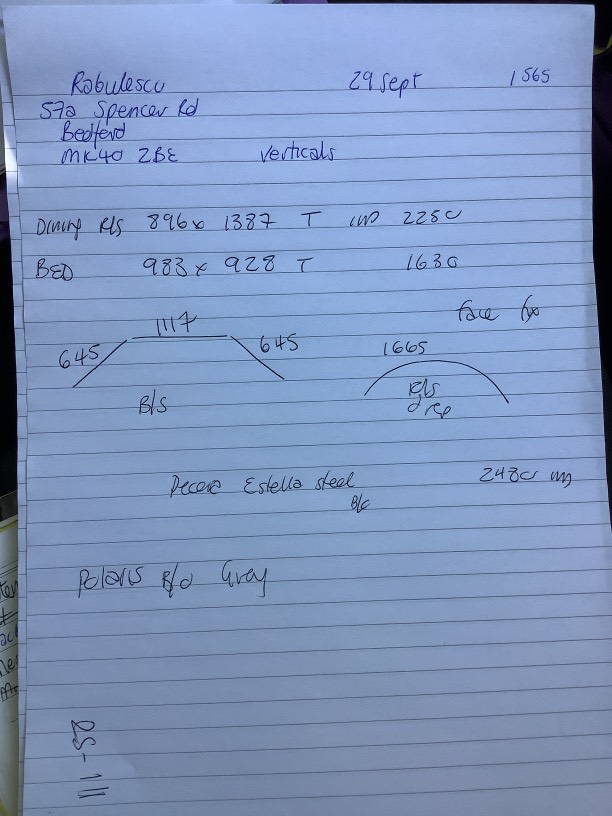 Robulescu 29 Sept 1565
57a Spencer Rd
Bedford
MK40 2BE Verticals
Dining R/S 896 x 1387 T 2250
BED 983 x 928 T 1630
face fix
1117
645 645 1665
B/S R/S
drop
Decora Estella steel 2480
B/C
Polaris B/O Gray